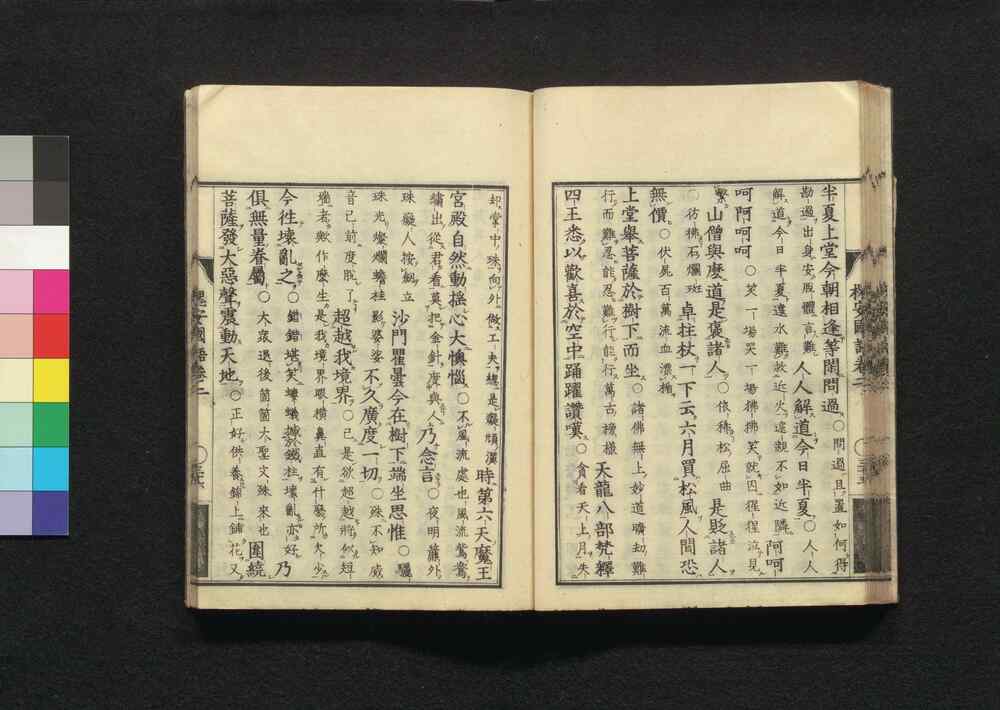 半夏上堂今朝相逢等閑問過○問過且置如何得
勘過出身安脫體言難人人解道今日半夏○人人
解道今日半夏遠水難救近火遠親不如近隣阿呵
呵阿呵呵○笑一場哭一場拂拂笑就囚猩猩泣見
縶山僧與麼道是褒諸人○依稀松屈曲是貶諸人
○彷彿石爛斑卓拄杖一下云六月買松風人間恐
無價○伏屍百萬流血漂杵
上堂舉菩薩於樹下而坐○諸佛無上妙道曠劫難
行而難忍能忍難行能行萬古榜樣天龍八部梵釋
四王悉以歡喜於空中踊躍讚嘆○貪看天上月失
槐安國語卷二
却堂中珠向外做工夫總是癡頑漢時第六天魔王
宮殿自然動搖心大懊惱○不風流處也風流鴛鴦
繡出從君看莫把金針度與人乃念言○夜明簾外
珠癡人按劒立沙門瞿曇今在樹下端坐思惟○驪
珠光燦爛蟾桂影婆娑不久廣度一切○殊不知威
音已前度脫了超越我境界○已是欲超越將似短
繼者歟作麼生是我境界眼橫鼻直有什麼所欠少
今徃壞亂之○錯錯堪笑螻蟻撼於鐵柱壞亂亦好乃
俱無量眷屬○大衆退後箇箇大聖文殊來也圍繞
菩薩發大惡聲震動天地○正好供養錦上鋪花又
槐安國語卷二